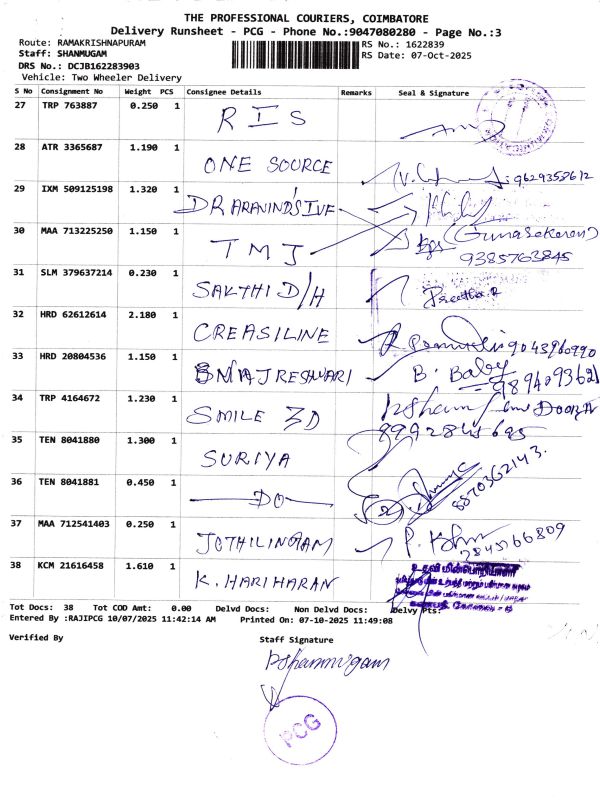 THE PROFESSIONAL COURIERS, COIMBATORE
Delivery Runsheet - PCG - Phone No.:9047080280 - Page No.:3
Route: RAMAKRISHNAPURAM RS No.: 1622839
Staff: SHANMUGAM RS Date: 07-Oct-2025
DRS No.: DCJB162283903
Vehicle: Two Wheeler Delivery
S No Consignment No Weight PCS Consignee Details Remarks Seal & Signature
27 TRP 763887 0.250 1 RIS
28 ATR 3365687 1.190 1 ONE SOURCE 9629358612
29 IXM 509125198 1.320 1 DR ARAVIND'S IVF
30 MAA 713225250 1.150 1 TMJ (Gunasekaran)
9385763845
31 SLM 379637214 0.230 1 SAKTHI D/H Preetha R
32 HRD 62612614 2.180 1 CREASILINE 9043960990
33 HRD 20804536 1.150 1 BNAJRESHWARI B. Baby
9894093621
34 TRP 4164672 1.230 1 SMILE 3D
35 TEN 8041880 1.300 1 SURIYA
36 TEN 8041881 0.450 1 DO 8870362143.
37 MAA 712541403 0.250 1 JOTHILINGAM 7845166809
38 KCM 21616458 1.610 1 K. HARIHARAN உதவி மின்பொறியாளர்
Tot Docs: 38 Tot COD Amt: 0.00 Delvd Docs: Non Delvd Docs: Delvy Pts:
Entered By :RAJIPCG 10/07/2025 11:42:14 AM Printed On: 07-10-2025 11:49:08
Verified By Staff Signature
PShanmugam
PCG